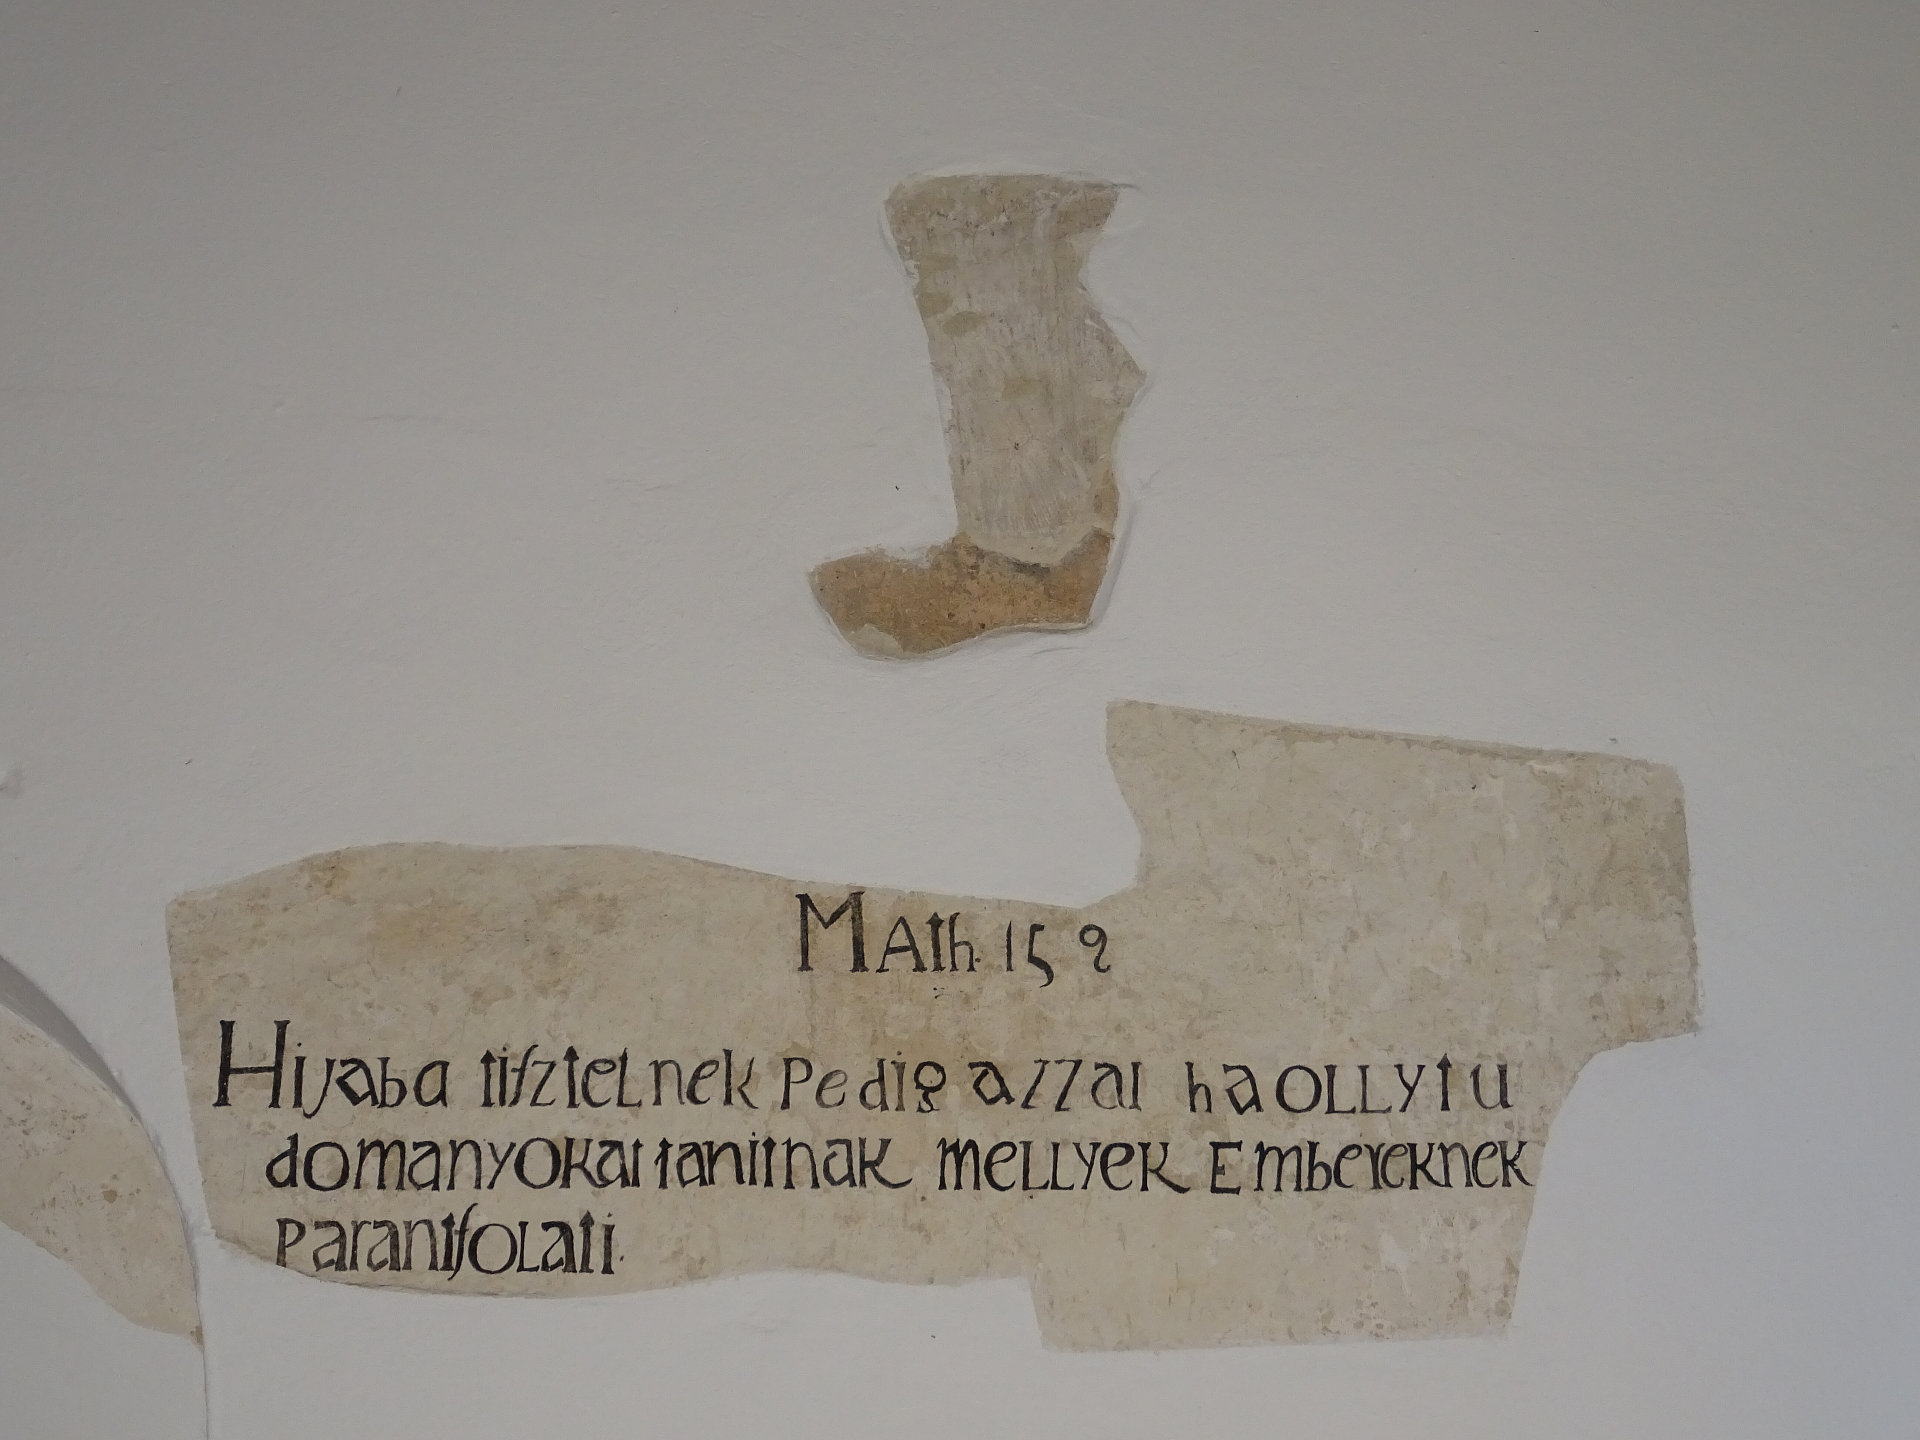 MATh. 15 9
Hijaba tifztelnek pedig azzal ha ollytu
domanyokat tanitnak mellyek Embereknek
parantsolati.